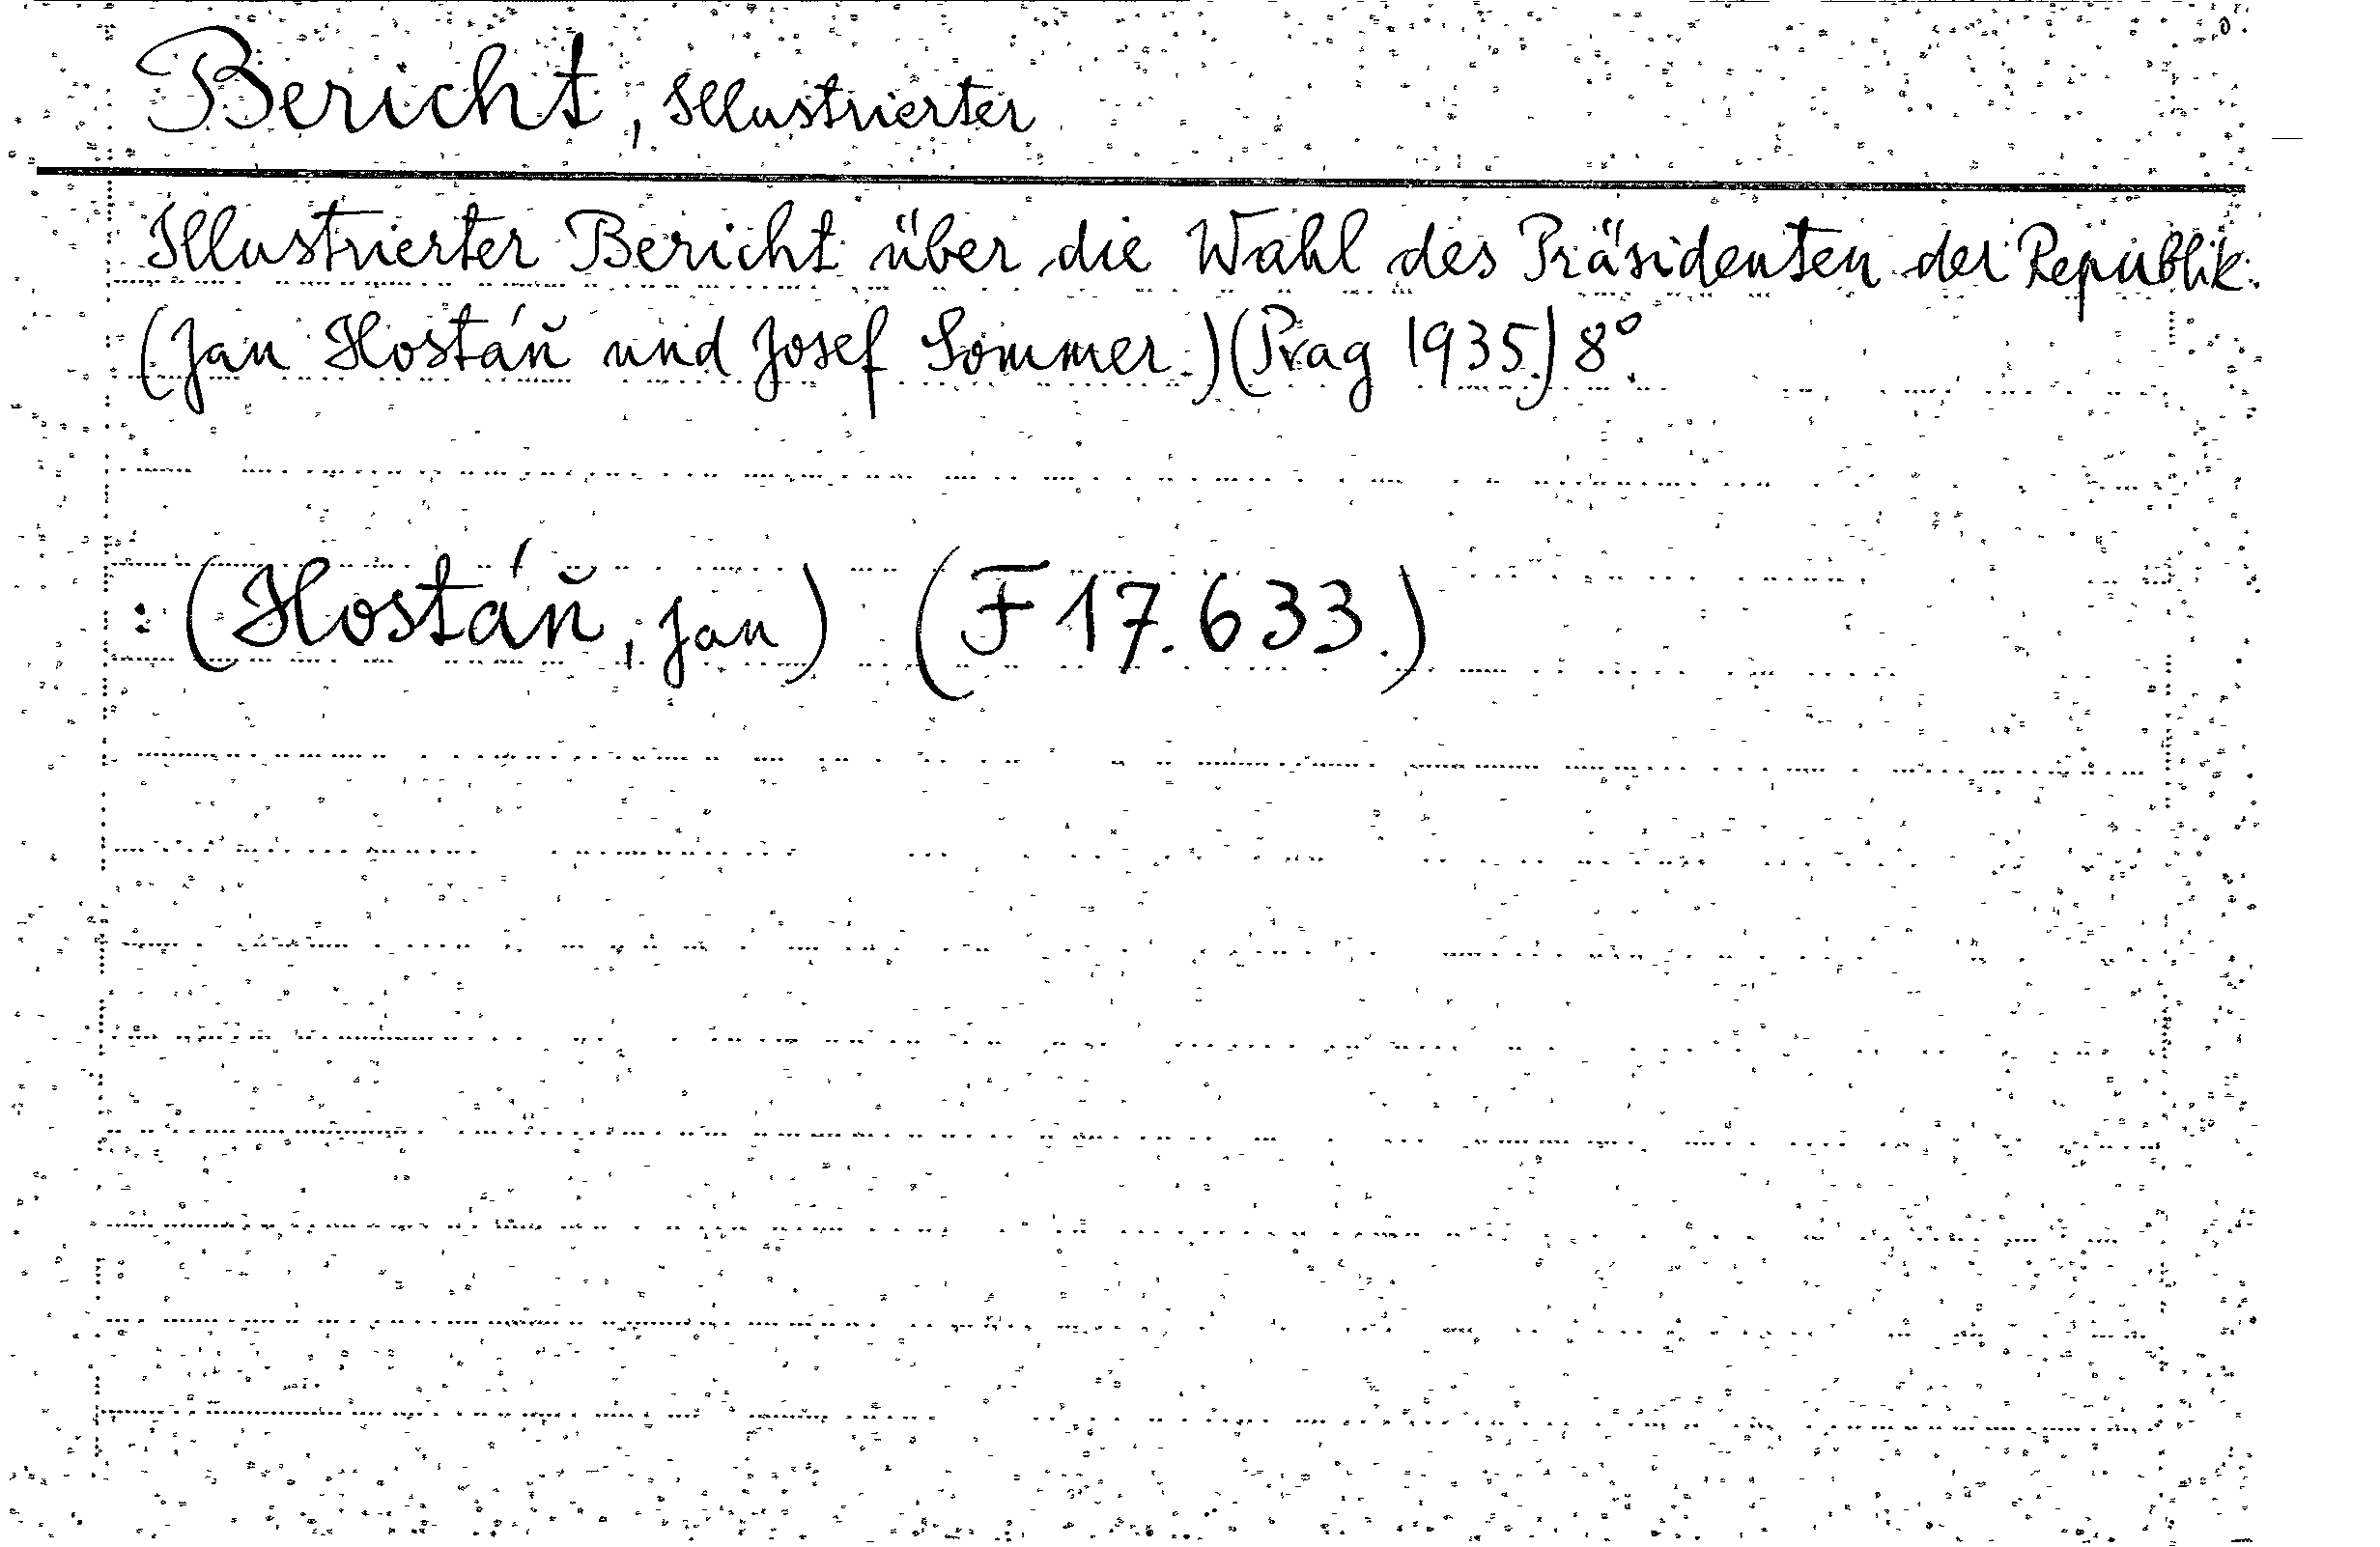 Bericht, Illustrierter
Illustrierter Bericht über die Wahl des Präsidenten der Republik.
(Jan Hostáň und Josef Sommer.) (Prag 1935.) 8°.
: (Hostáň, Jan) (F 17.633.)